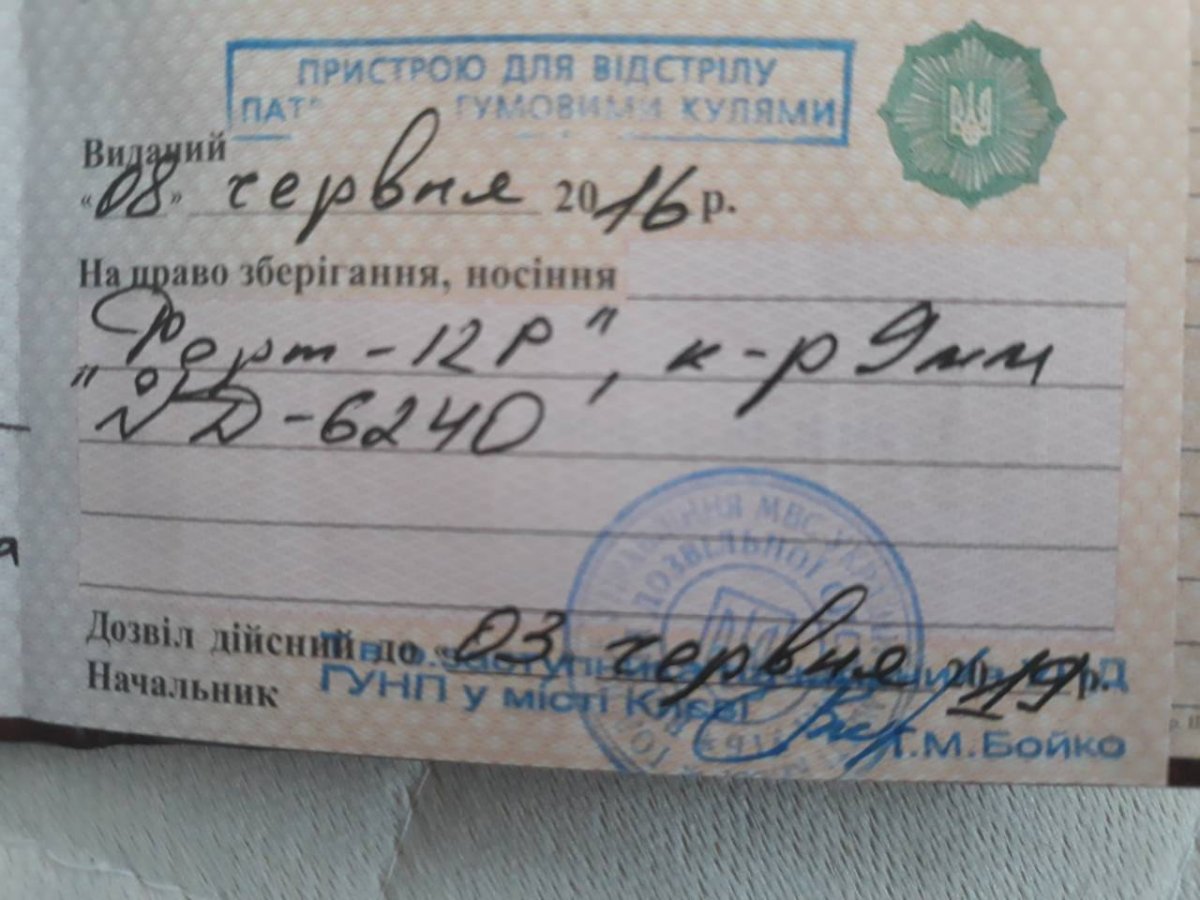 ПРИСТРОЮ ДЛЯ ВІДСТРІЛУ
ПАТ ГУМОВИМИ КУЛЯМИ
Виданий
«08» червня 2016 р.
На право зберігання, носіння
"Форт-12Р", к-р 9мм
№ Д-6240
УПРАВЛІННЯ МВС УКРАЇНИ
ДОЗВІЛЬНОЇ
Дозвіл дійсний до «03 червня 2019 р.
Начальник
ГУНП у місті Києві
Т.М.Бойко